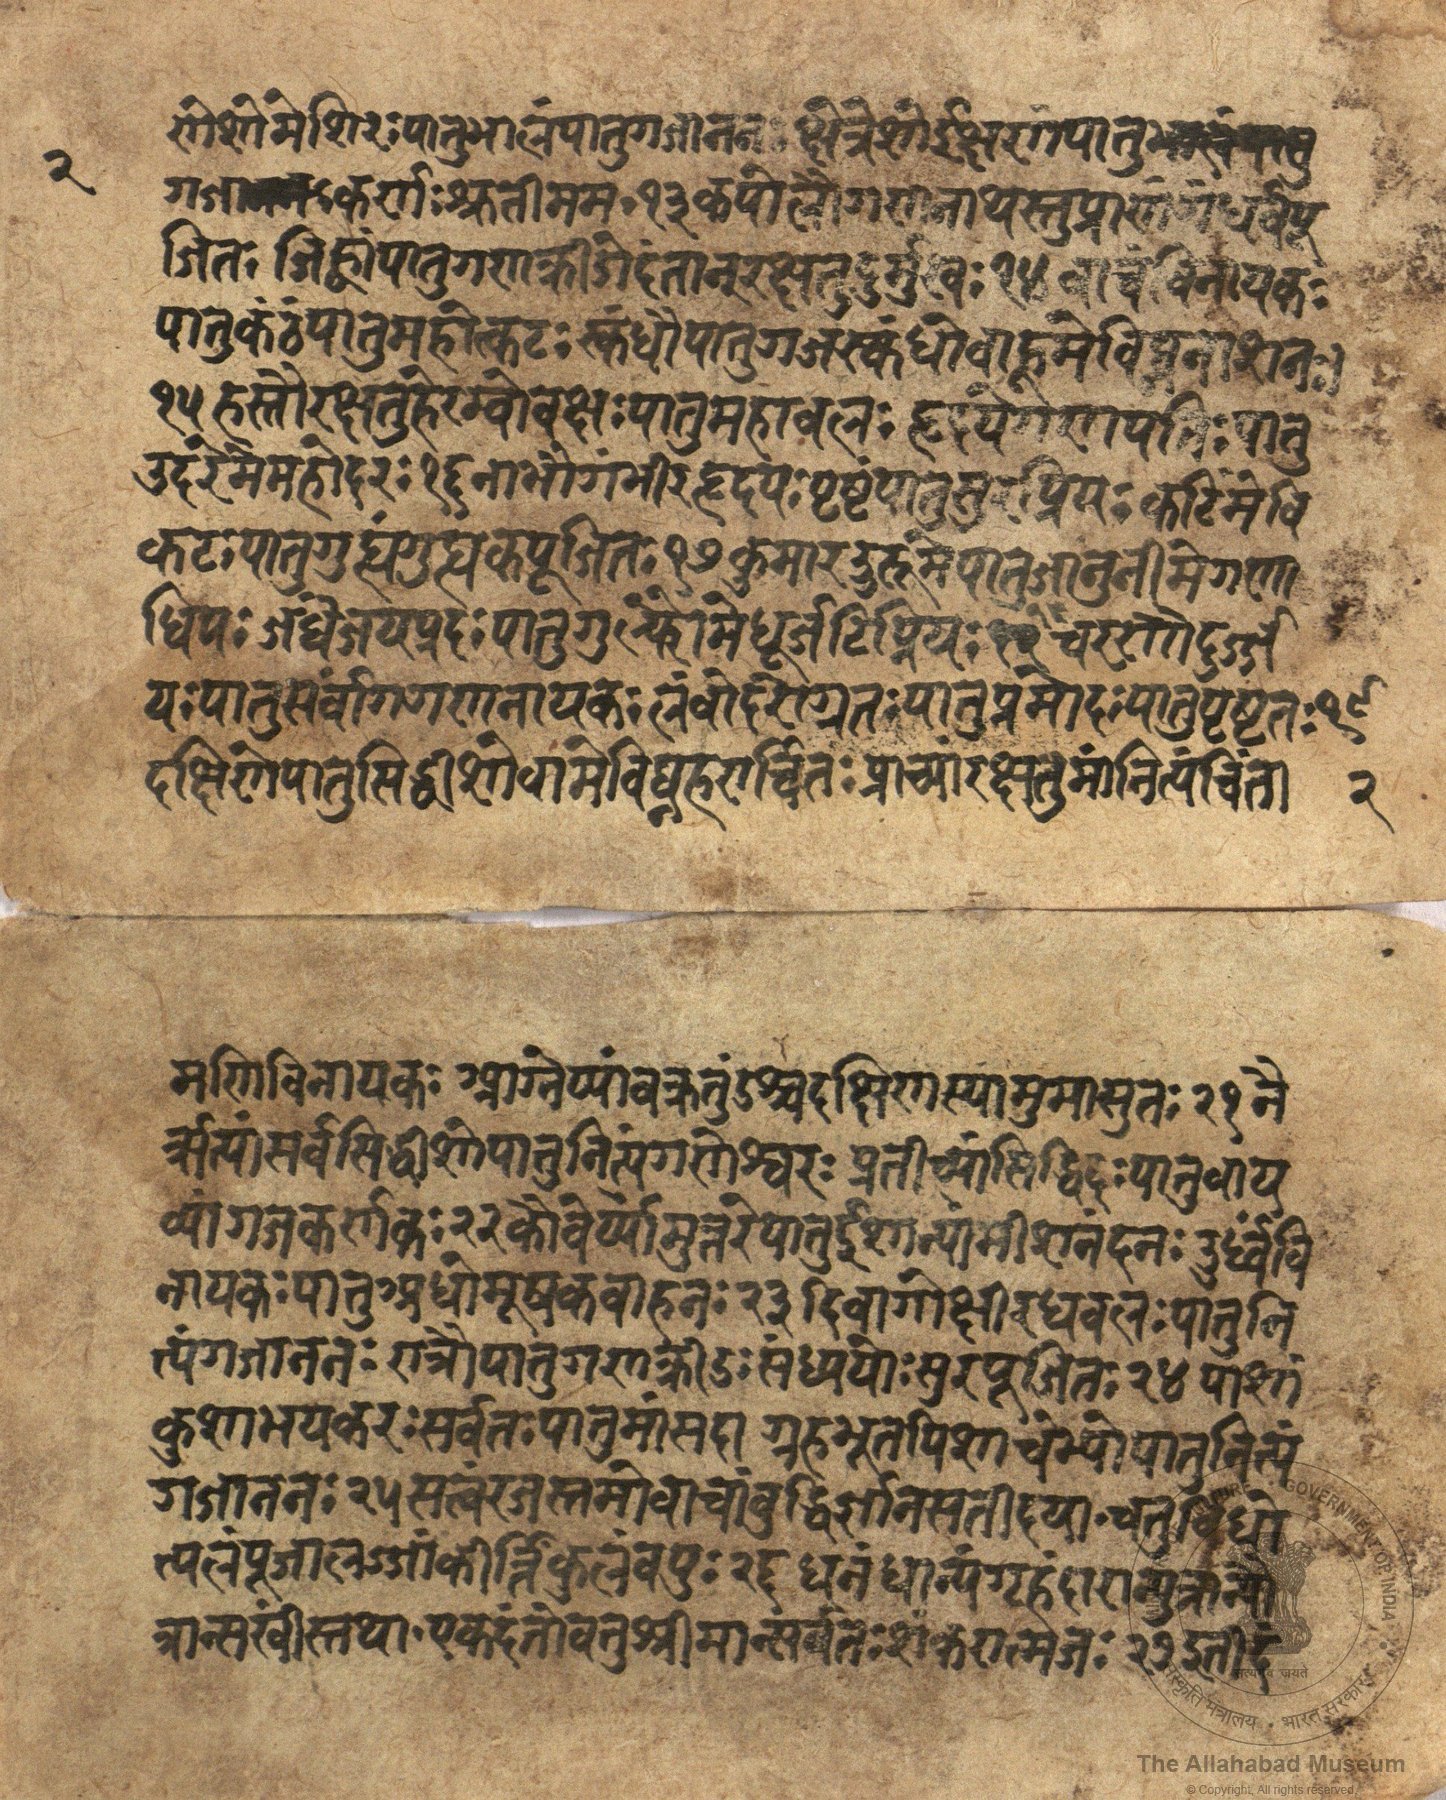 २
णेशोमेशिरःपातुभालंपातुगजाननः क्षेत्रेशोईक्षणेपातु
गजा कर्णःश्रुतीमम॰१३कपोलौगणनाथस्तुघ्राणंगंधर्वपू
जितः जिह्वांपातुगणक्रीडोदंतान्रक्षतुदुर्मुखः१४वाचंविनायकः
पातुकंठंपातुमहोत्कटः स्कंधौपातुगजस्कंधोवाहूमेविघ्ननाशनः
१५हस्तौरक्षतुहेरम्वोवक्षःपातुमहावलः हृदयंगणपतिःपातु
उदरंमेमहोदरः१६नाभींगंभीरहृदयःपृष्टंपातुसुरप्रियः कटिंमेवि
कटःपातुगुह्यंगुह्यकपूजितः१७कुमारदुरूमेपातुजानुनीमेगणा
धिपः जंघेजयप्रदःपातुगुल्फौमेधूर्जटिप्रियः चरणौदुर्ज
यःपातुसर्वांगगणनायकः लंवोदरोग्रतःपातुप्रमोदःपातुपृष्टतः१९
दक्षिणेपातुसिद्धीशोवामेविघ्नहरार्चितः प्राच्यांरक्षतुमांनित्यंचिंता
२
मणिविनायकः आग्नेय्यांवक्रतुंडश्चदक्षिणस्यामुमासुतः २१ नै
र्ऋत्यांसर्वसिद्धीशोपातुनित्यंगणेश्वरः प्रतीच्यांसिद्धिदःपातुवाय
व्यांगजकर्णकः२२कौवेर्य्यामुत्तरेपातुईशान्यामीशनंदनः उर्ध्वंवि
नायकःपातुअधोमूषकवाहनः२३दिवागोक्षीरधवलःपातुनि
त्यंगजाननः रात्रौपातुगणक्रीडःसंध्ययोःसुरपूजितः२४ पाशां
कुशाभयकरःसर्वतःपातुमांसदा ग्रहभूतपिशाचेभ्योपातुनित्यं
गजाननः २५सत्वंरजस्तमोवाचांवुद्धिर्ज्ञानसतीदया॰चतुर्विधो
त्यलंपूजालज्जांकीर्त्तिकुलंवपुः २६ धनंधान्यंगृहंदारान्पुत्रान्मि
त्रान्सखींस्तथा॰एकदंतोवतुश्रीमान्सर्वतःशंकरात्मजः २७
The Allahabad Museum
© Copyright, All rights reserved.